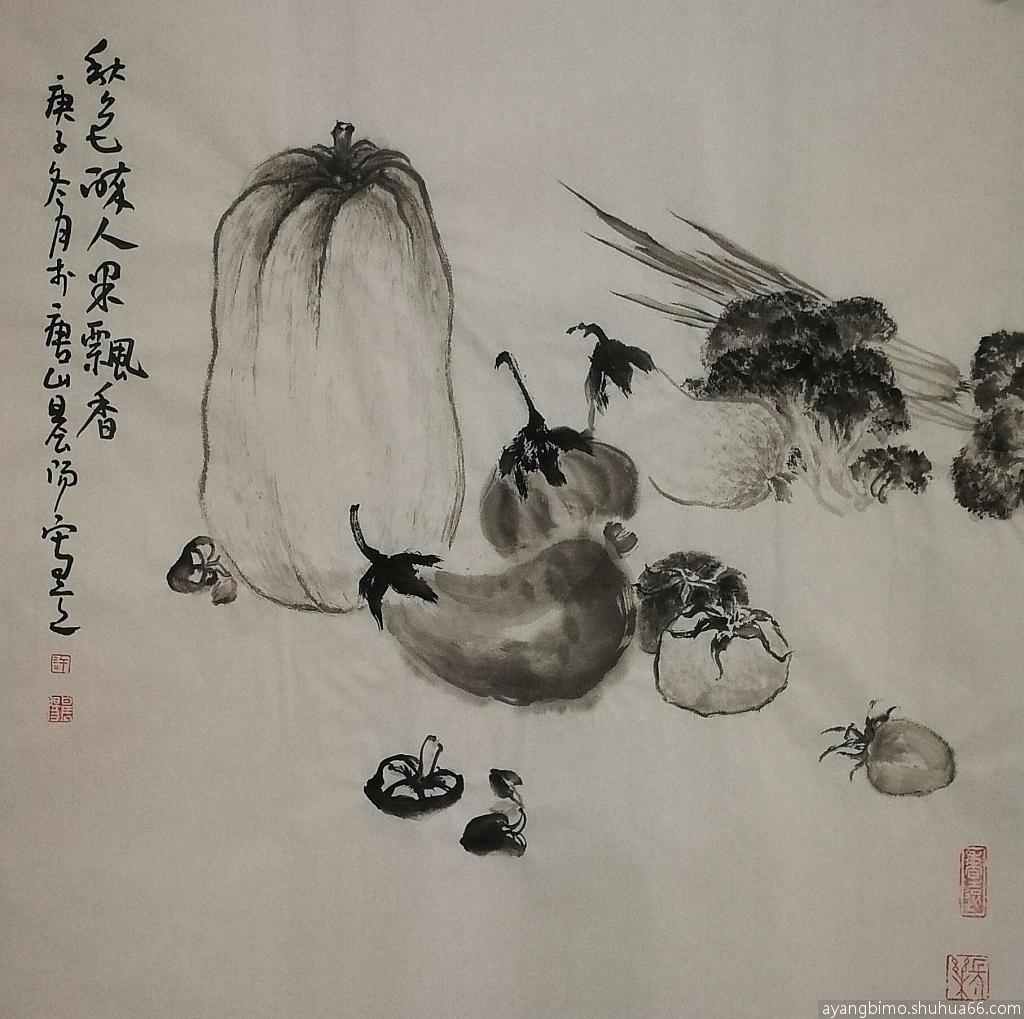 秋色醉人果飄香
庚子冬月於唐山晨陽寫並題
許
ayangbimo.shuhua66.com